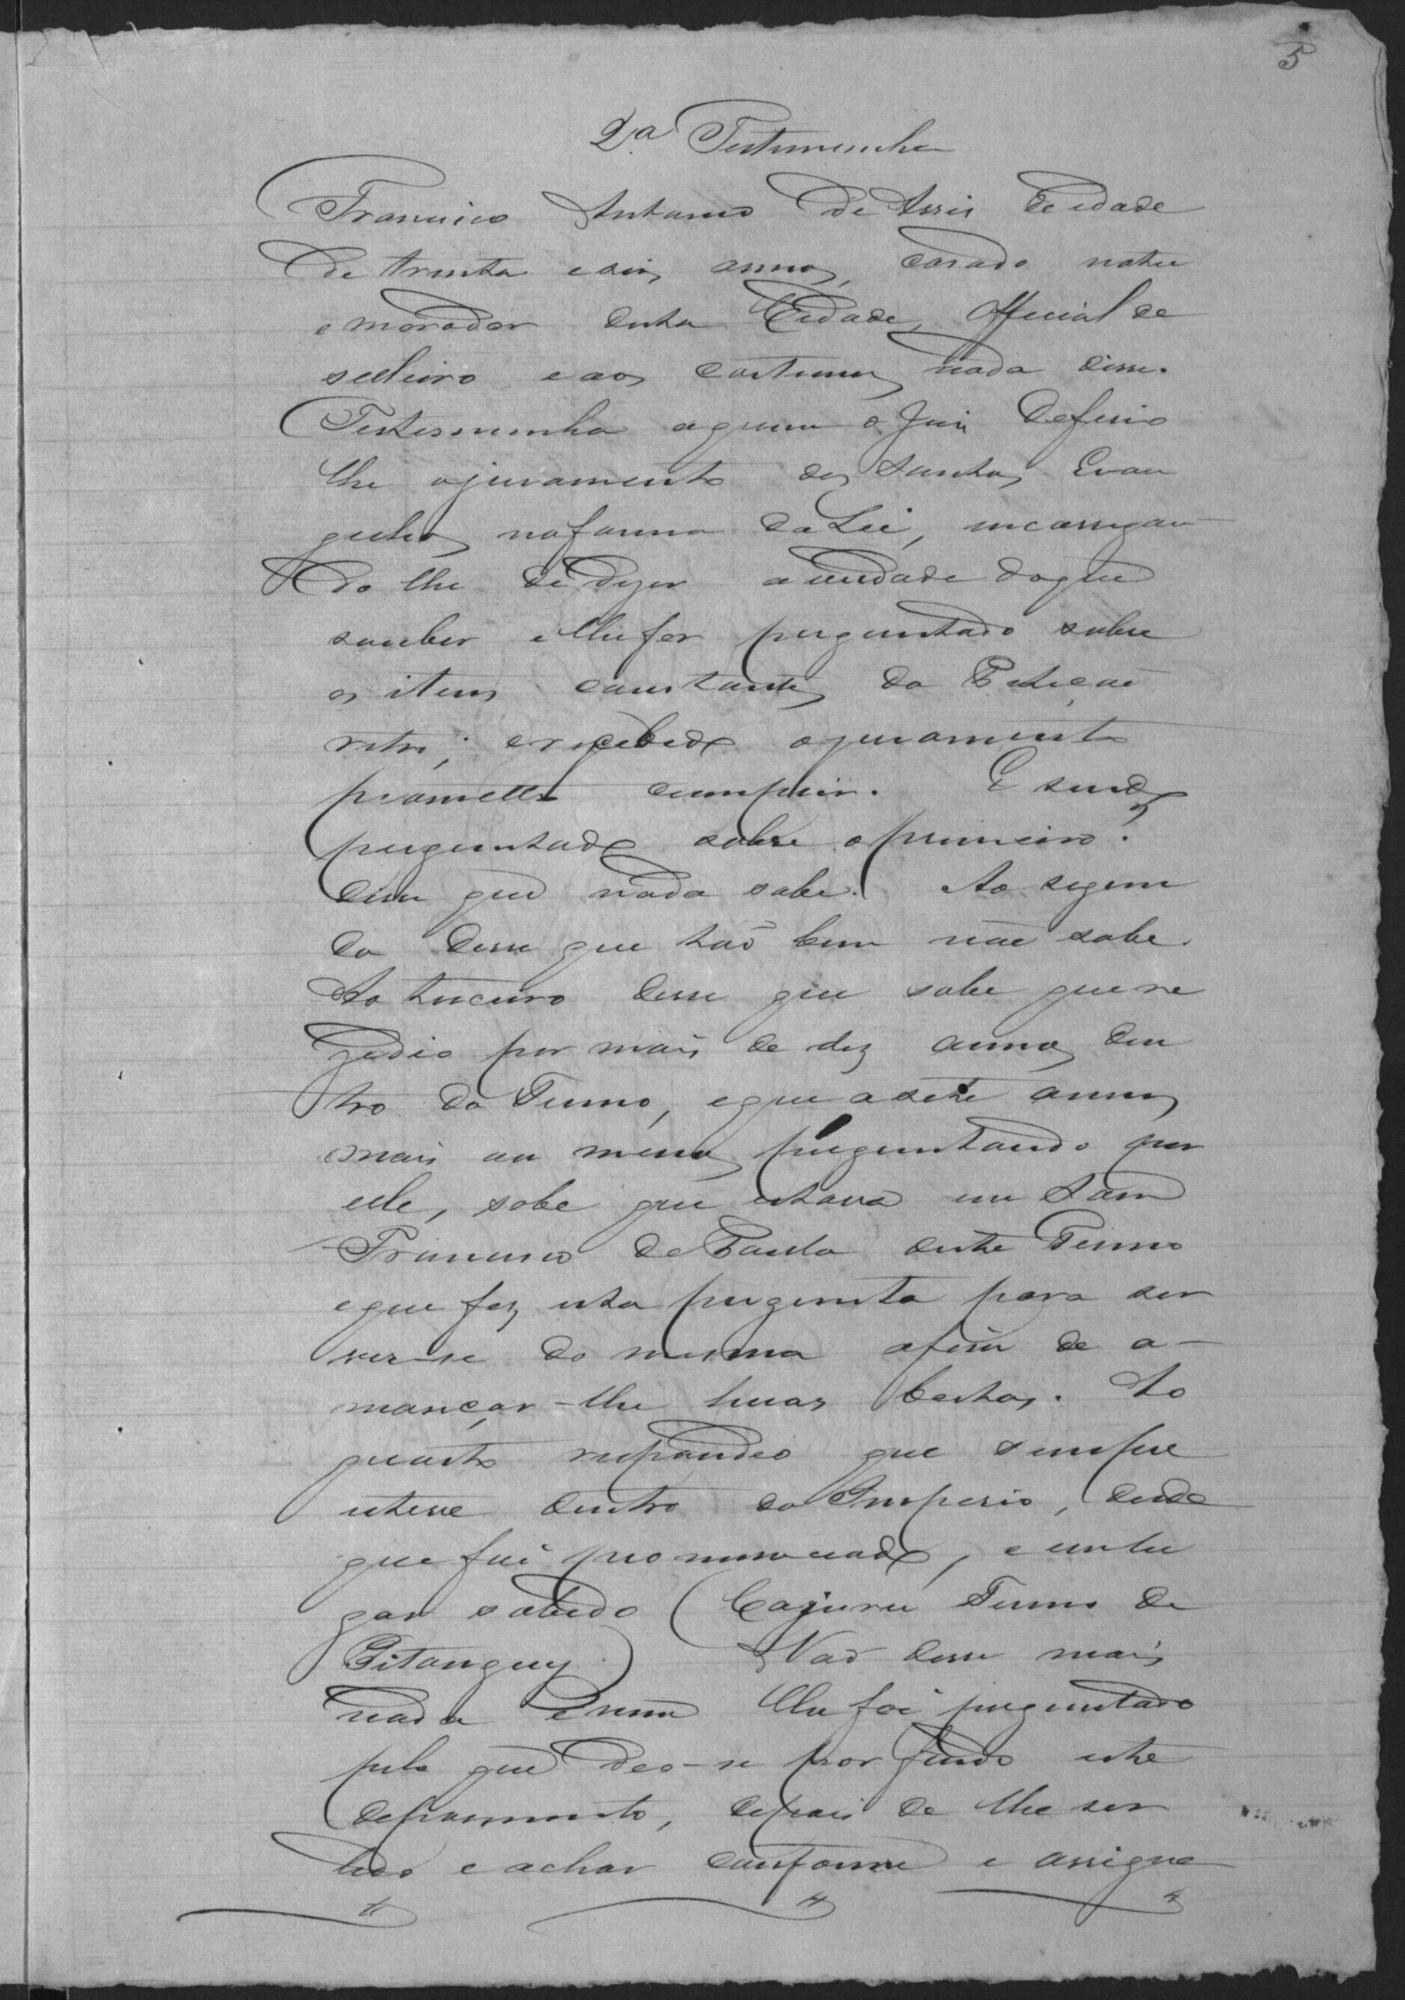 5
2.a Testemunha
Francisco Antonio de Assis de idade
de trinta e seis annos, casado natu
e morador desta Cidade, official de
selleiro e aos costumes nada disse.
Testesmunha a quem o Juis deferio
lhe o juramento dos Santos Evan
gelhos na forma da Lei, incarregan
do lhe de dizer a verdade do que
souber e lhe for perguntado sobre
os itens constantes da Petição
retro; e recebido o juramento
prometteo cumprir. E sendo
perguntado sobre o primeiro?
disse que nada sabe. Ao segun
do disse que tão bem não sabe.
Ao terceiro disse que sabe que re
zedio por mais de dez annos den
tro do Termo, e que a sete annos
mais ou menos perguntando por
elle, sobe que estava em Sam
Francisco de Paula deste Termo
e que fez esta pergunta para ser
ver-se do mesmo afim de a-
mançar-lhe huas bestas. Ao
quarto respondeo que sempre
esteve dentro do Imperio, desde
que foi pronunciado, e em lu
gar sabido (Cajuru Termo de
Pitanguy) Nao disse mais
nada e nem lhe foi perguntado
pelo que deo-se por findo este
depoimento, depois de lhe ser
lido e achar conforme e assigna